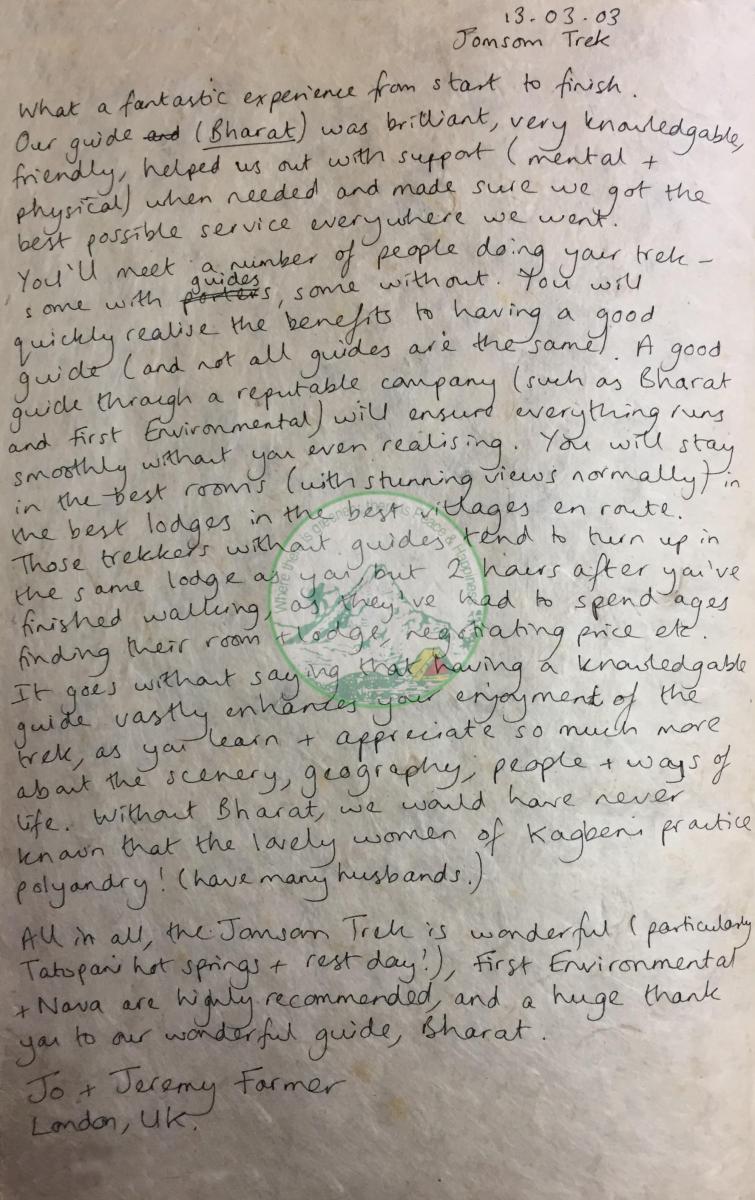 13.03.03
Jomsom Trek
What a fantastic experience from start to finish.
Our guide and (Bharat) was brilliant, very knowledgable,
friendly, helped us out with support (mental +
physical) when needed and made sure we got the
best possible service everywhere we went.
You'll meet a number of people doing your trek -
guides
some with porters, some without. You will
quickly realise the benefits to having a good
guide (and not all guides are the same). A good
guide through a reputable company (such as Bharat
and First Environmental) will ensure everything runs
smoothly without you even realising. You will stay
in the best rooms (with stunning views normally) in
the best lodges in the best villages en route.
Those trekkers without guides tend to turn up in
the same lodge as you but 2 hours after you've
finished walking, as they've had to spend ages
finding their room + lodge, negotiating price etc.
It goes without saying that having a knowledgable
guide vastly enhances your enjoyment of the
trek, as you learn + appreciate so much more
about the scenery, geography, people + ways of
life. Without Bharat, we would have never
known that the lovely women of Kagbeni practice
polyandry! (have many husbands.)
All in all, the Jomsom Trek is wonderful (particularly
Tatopani hot springs + rest day!), First Environmental
+ Nava are highly recommended, and a huge thank
you to our wonderful guide, Bharat.
Jo + Jeremy Farmer
London, UK.
Where there is greenery there is peace & Happiness